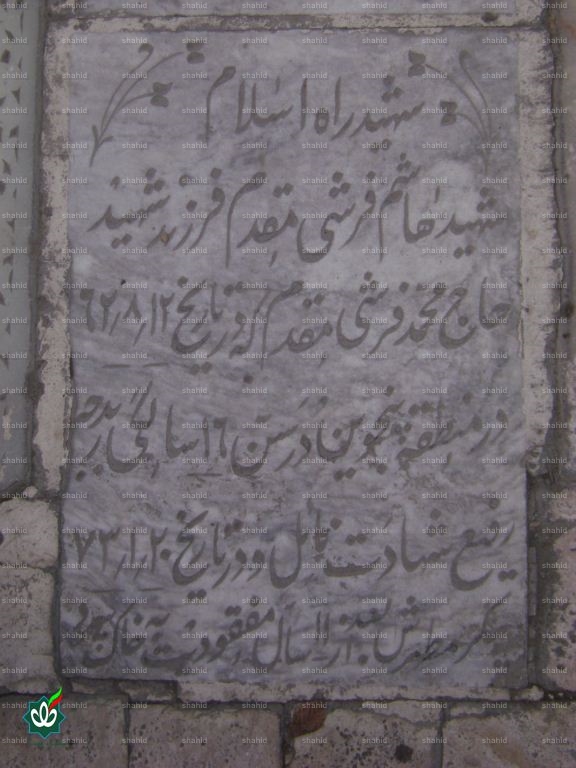 شهید راه اسلام
شهید هاشم قرشی مقدم فرزند شهید
حاج محمد قرشی مقدم که در تاریخ ۶۲/۸/۱۲
در منطقه پنجوین در سن ۱۶ سالگی بدرجه
رفیع شهادت نائل و در تاریخ ۷۳/۱/۲۰
مطهرش بعد از سال مفقودیت به خاک